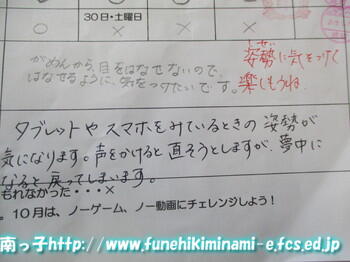 30日・土曜日
○ × × ×
がめんから、目をはなせないので、
はなせるように、気をつけたいです。
姿勢に気をつけて
楽しもうね
タブレットやスマホをみているときの姿勢が
気になります。声をかけると直そうとしますが、夢中に
なると戻ってしまいます。
もれなかった・・・×
。10月は、ノーゲーム、ノー動画にチェレンジしよう!
南っ子http://www.funehikiminami-e.fcs.ed.jp